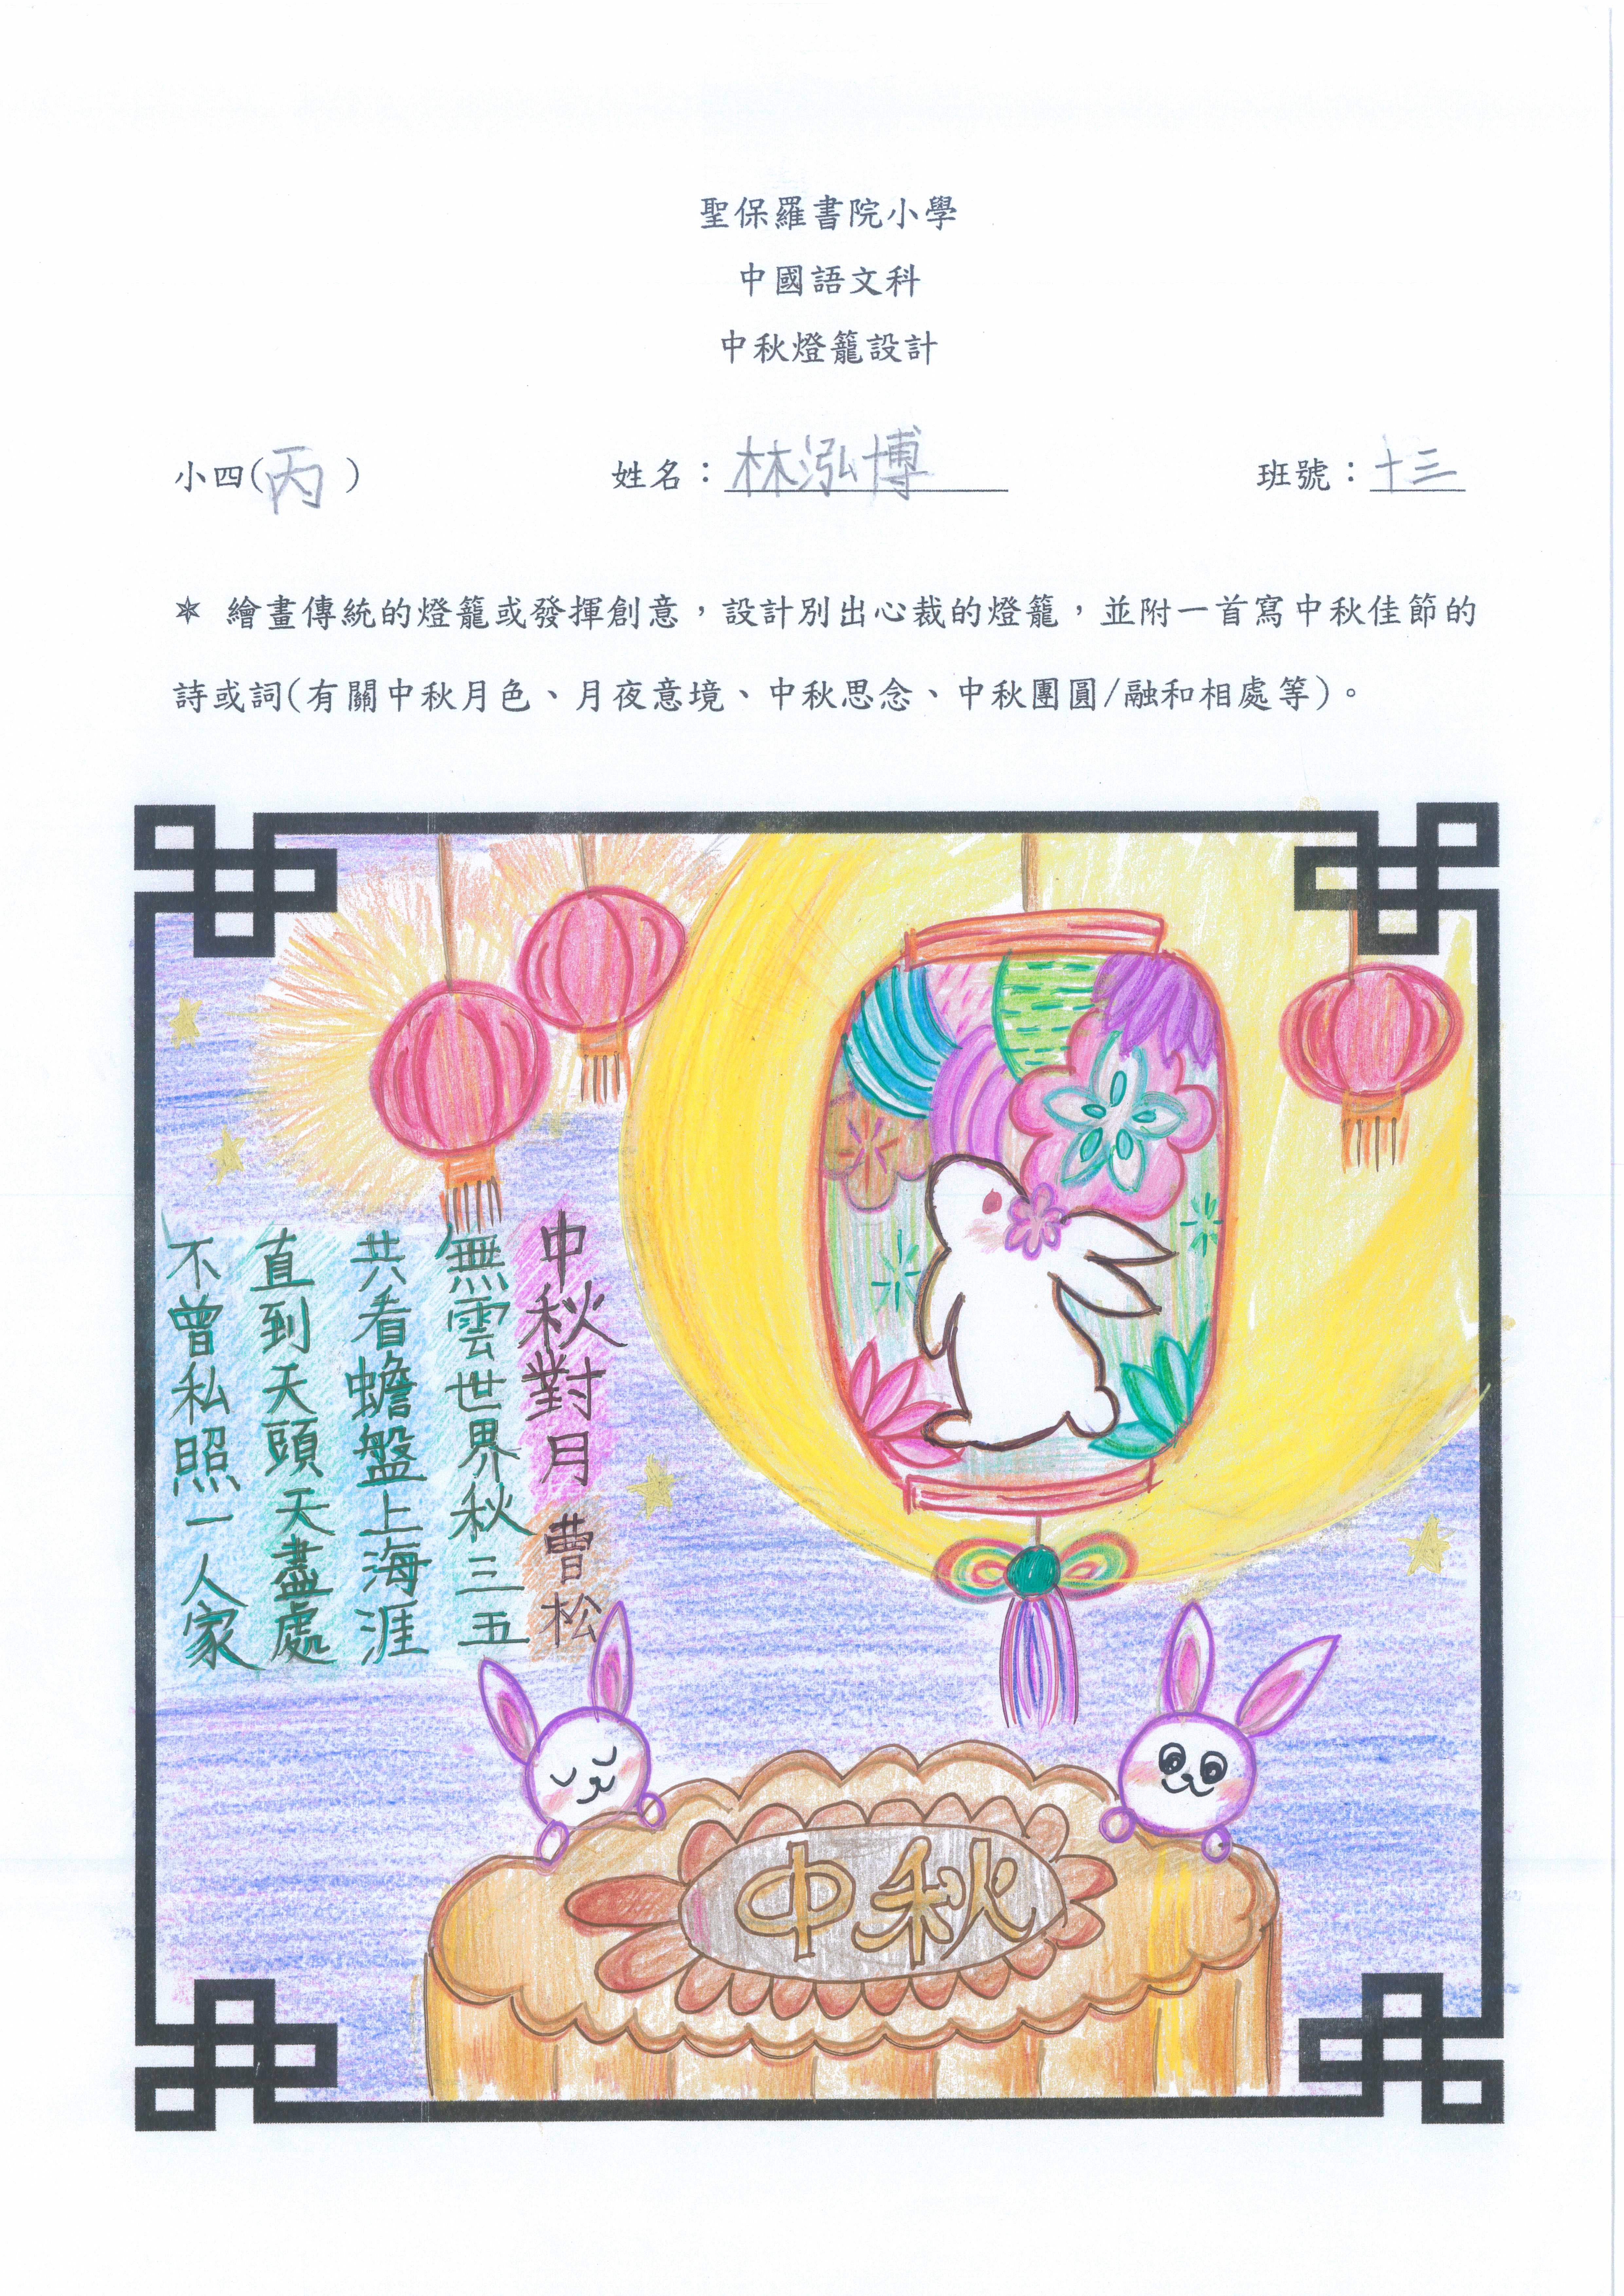 聖保羅書院小學
中國語文科
中秋燈籠設計
小四(丙) 姓名：林泓博 班號：十三
✶ 繪畫傳統的燈籠或發揮創意，設計別出心裁的燈籠，並附一首寫中秋佳節的
詩或詞(有關中秋月色、月夜意境、中秋思念、中秋團圓/融和相處等)。
中秋對月 曹松
無雲世界秋三五
共看蟾盤上海涯
直到天頭天盡處
不曾私照一人家
中秋